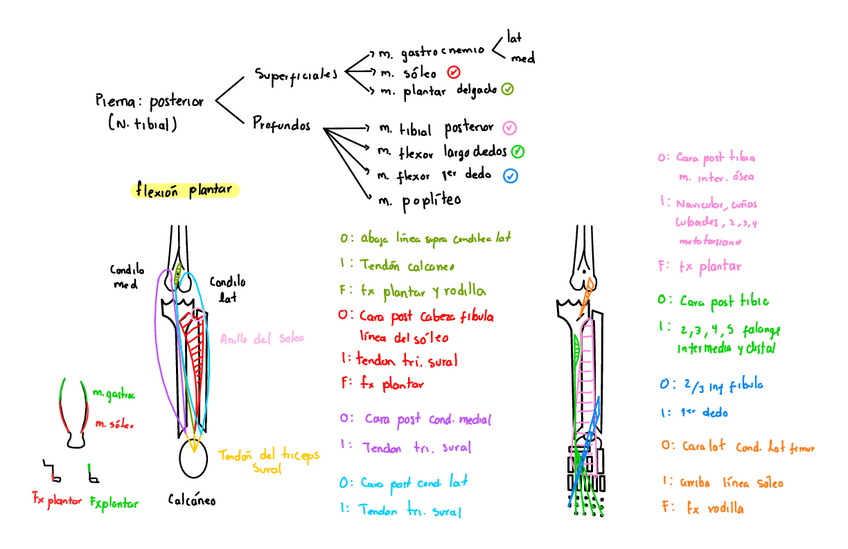 Pierna: posterior
(N. tibial)
Superficiales
m. gastrocnemio
lat
med
m. sóleo
m. plantar delgado
Profundos
m. tibial posterior
m. flexor largo dedos
m. flexor 1er dedo
m. poplíteo
flexión plantar
Condilo
med
Condilo
lat
Anillo del soleo
m. gastroc
m. sóleo
Fx plantar
Fx plantar
Tendón del triceps
sural
Calcáneo
O: abajo línea supra condilea lat
I: Tendón calcaneo
F: fx plantar y rodilla
O: Cara post cabeza fibula
línea del sóleo
I: tendon tri. sural
F: fx plantar
O: Cara post Cond. medial
I: Tendon tri. sural
O: Cara post cond. lat
I: Tendon tri. sural
O: Cara post tibia
m. inter. ósea
I: Navicular, cuñas
cuboides, 2, 3, 4
metatarsiano
F: fx plantar
O: Cara post tibia
I: 2, 3, 4, 5 falange
intermedia y distal
O: 2/3 inf fibula
I: 1er dedo
O: Cara lat Cond. lat femur
I: arriba línea sóleo
F: fx rodilla